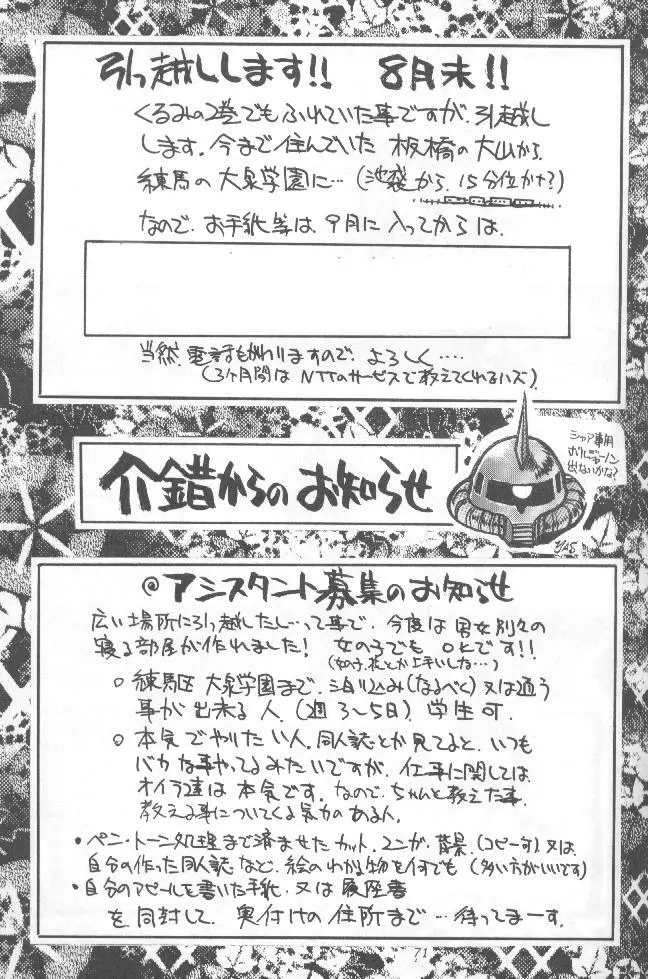 引っ越しします!! 8月末!!
くるみの2巻でもふれていた事ですが、引越し
します。今まで住んでいた 板橋の大山から、
練馬の大泉学園に…(池袋から、15分位かナ?)
なので、お手紙等は、9月に入ってからは、
当然、電話もかわりますので、よろしく‥‥
(3ヶ月間は NTTのサービスで教えてくれるハズ)
介錯からのお知らせ
シャア専用
ポリジョーノン
出ないかな?
◎アシスタント募集のお知らせ
広い場所に引っ越したし…って事で、今度は男女別々の
寝る部屋が作れました! 女の子でもOKです!!
(女の子、花とか上手いしね…)
○ 練馬区 大泉学園まで、泊り込み(なるべく)又は通う
事が出来る人。(週3〜5日)学生可。
○ 本気でやりたい人。同人誌とか見てると、いつも
バカな事やってるみたいですが、仕事に関しては
オイラ達は本気です。なので、ちゃんと教えた事、
教える事についてくる気力のある人。
・ペン・トーン処理まで済ませたカット、マンガ、背景、(コピー可)又は、
自分の作った同人誌など、絵のわかる物を何でも(多い方がいいです)
・自分のアピールを書いた手紙、又は履歴書
を、同封して、奥付けの住所まで…待ってまーす。
71